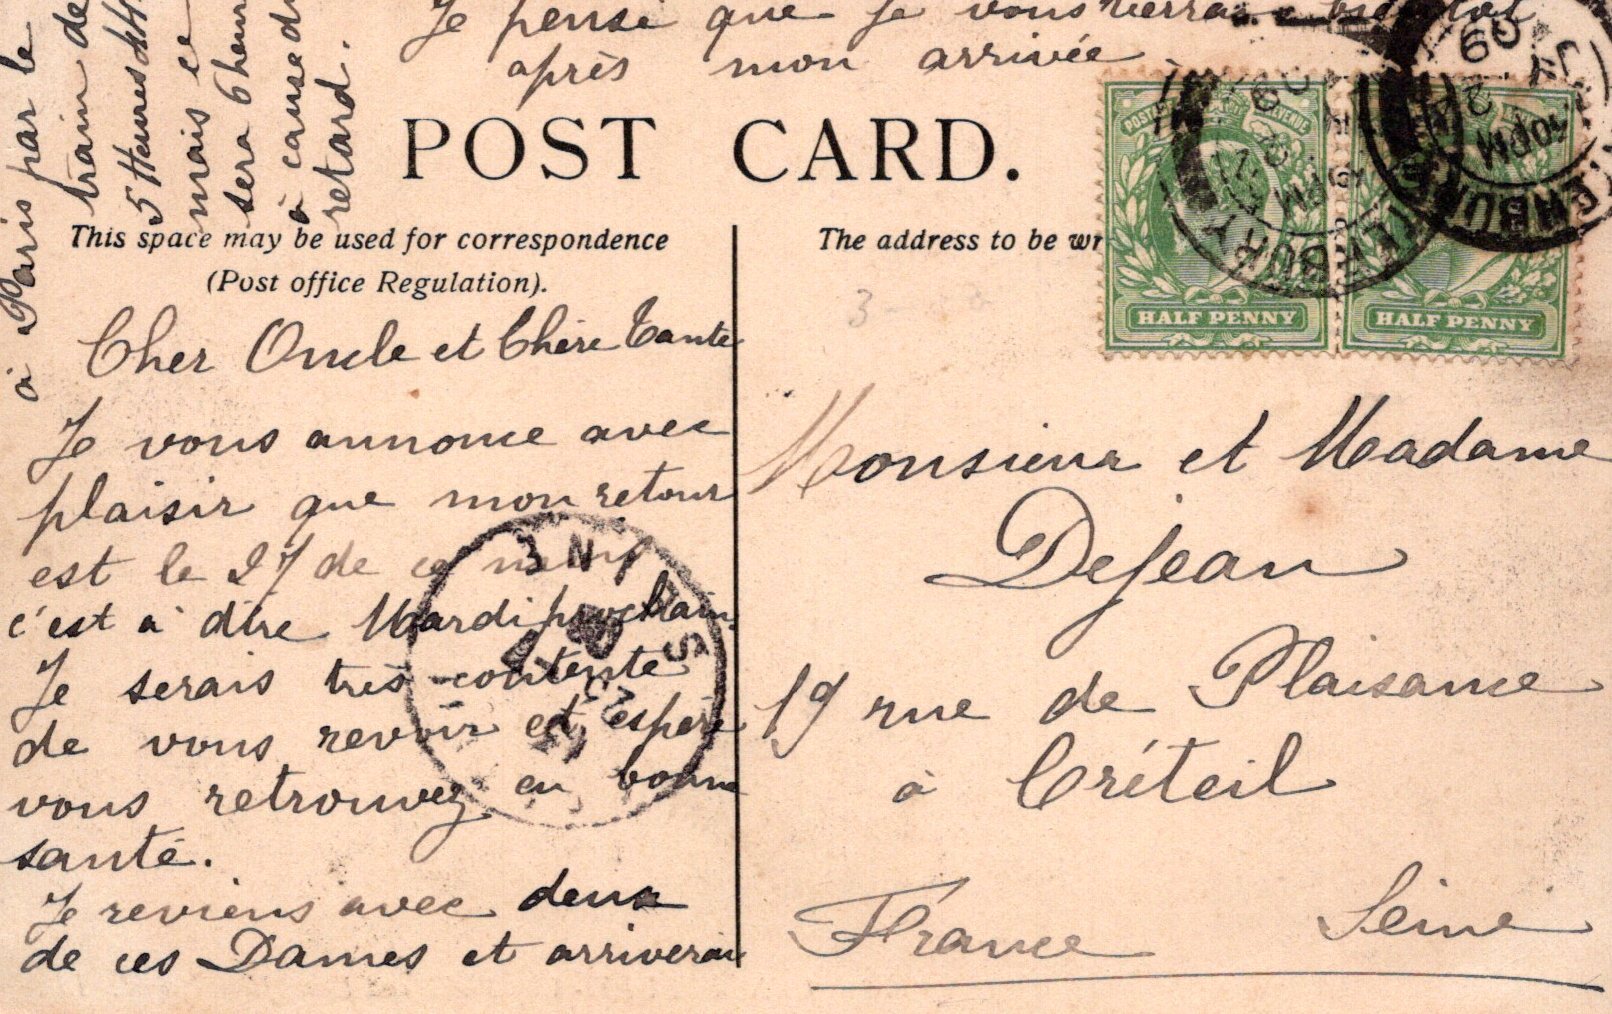 Je pense que je vous verrais bientôt
après mon arrivée
POST CARD.
This space may be used for correspondence
(Post office Regulation).
The address to be wr
POSTAGE REVENUE
HALF PENNY
HALF PENNY
10PM
09
Cher Oncle et Chère Tante
Je vous annonce avec
plaisir que mon retour
est le 27 de ce mois
c'est à dire Mardi prochain.
Je serais très contente
de vous revoir et espère
vous retrouvez en bonne
santé.
Je reviens avec deux
de ces Dames et arriverai
à Paris par le
train de
5 Heures
mais ce
sera 6 heures
à cause du
retard.
Monsieur et Madame
Dejean
19 rue de Plaisance
à Créteil
Seine
France